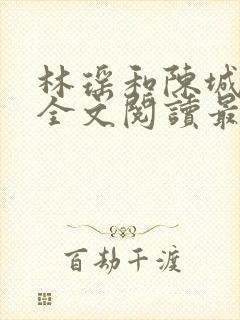 林瑶和陳城
全文閱讀最
百劫千渡